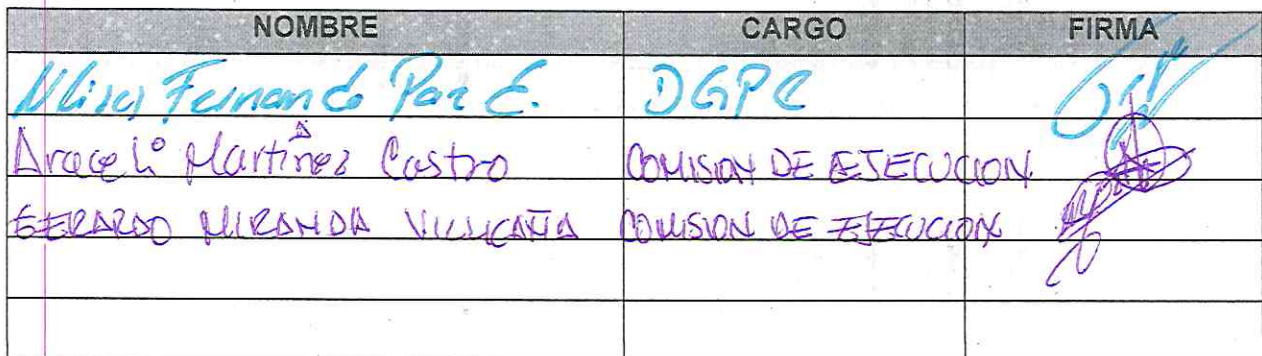 NOMBRE CARGO FIRMA
Fernando Paz E. DGPC
Araceli Martínez Castro COMISION DE EJECUCION
GERARDO MIRANDA VILLICAÑA COMISION DE EJECUCION